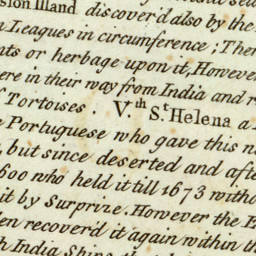 sion Illand discover'd also by the
n Leagues in circumference; Ther
nts or herbage upon it, However
ere in their way from India and r
f Tortoises. V.th S.t Helena a
e Portuguese who gave this na
, but since deserted and afte
600 who held it till 1673 witho
it by Surprize. However the E
len recover'd it again within th
h India Ships